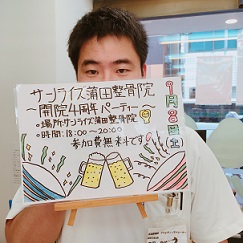 サンライズ蒲田整骨院
~開院4周年パーティー~
・場所:サンライズ蒲田整骨院
・時間:18:00~20:00
参加費無料です
1月8日(土)